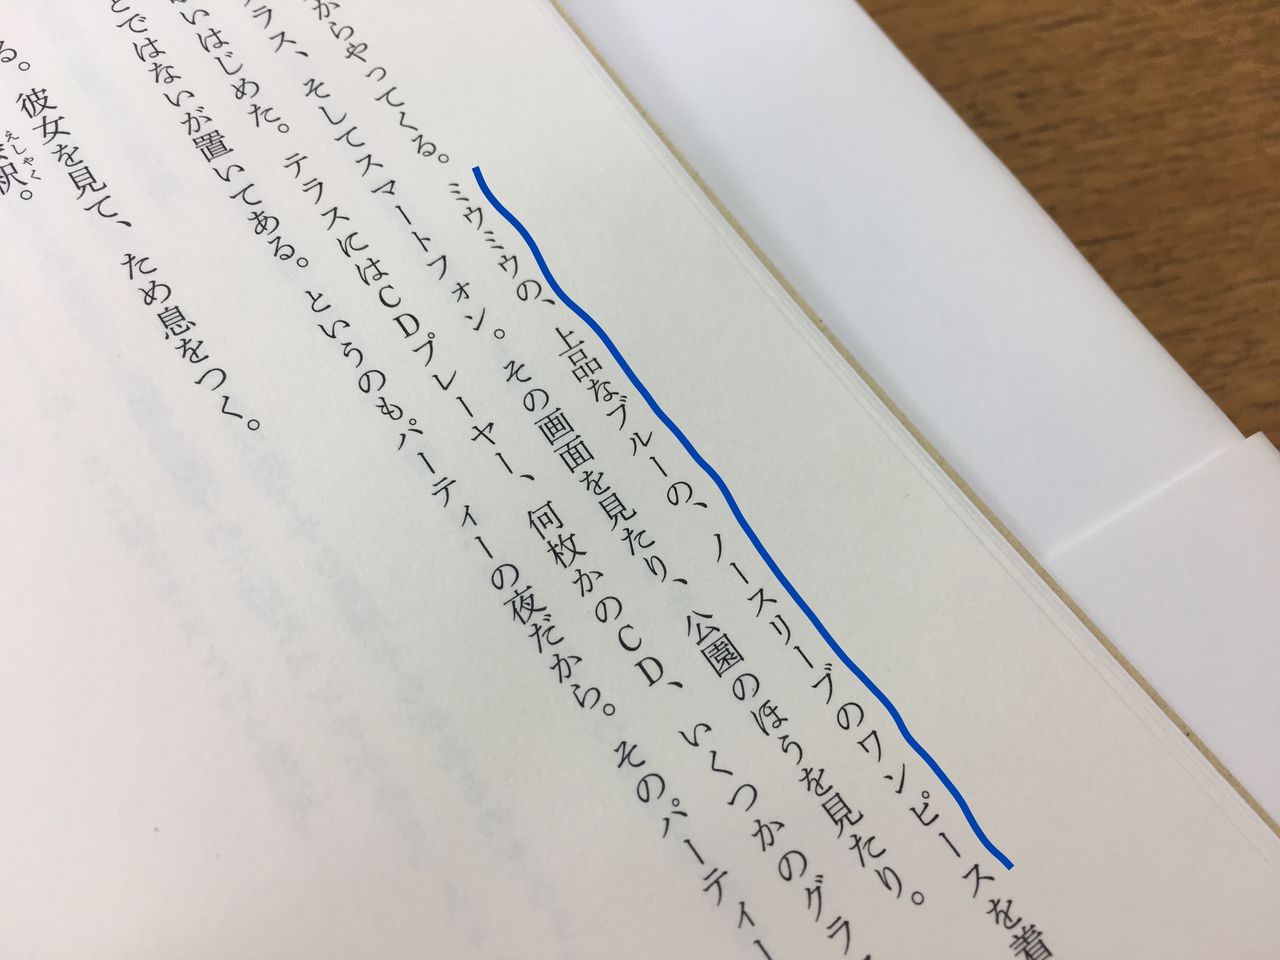 からやってくる。ミウミウの、上品なブルーの、ノースリーブのワンピースを着
ラス、そしてスマートフォン。その画面を見たり、公園のほうを見たり。
いはじめた。テラスにはCDプレーヤー、何枚かのCD、いくつかのグラ
とではないが置いてある。というのもパーティーの夜だから。そのパーティー
る。彼女を見て、ため息をつく。
釈。
えしゃく